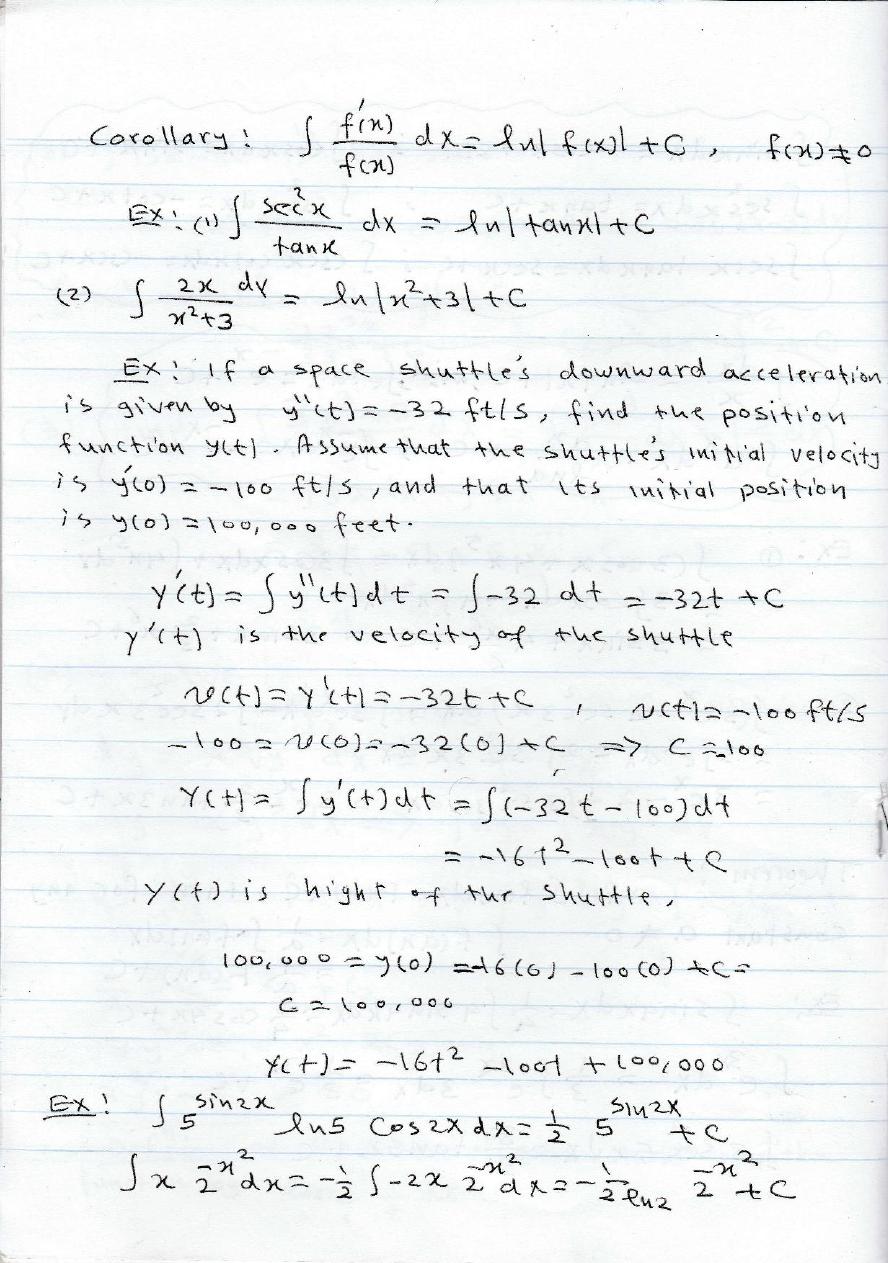 Corollary: ∫ f'(x)/f(x) dx = ln|f(x)| + C, f(x) ≠ 0
Ex: (1) ∫ sec²x/tanx dx = ln|tanx| + C
(2) ∫ 2x/(x²+3) dx = ln|x²+3| + C
Ex: If a space shuttle's downward acceleration
is given by y''(t) = -32 ft/s, find the position
function y(t). Assume that the shuttle's initial velocity
is y'(0) = -100 ft/s, and that its initial position
is y(0) = 100,000 feet.
y'(t) = ∫ y''(t) dt = ∫ -32 dt = -32t + C
y'(t) is the velocity of the shuttle
v(t) = y'(t) = -32t + C, v(t) = -100 ft/s
-100 = v(0) = -32(0) + C => C = -100
y(t) = ∫ y'(t) dt = ∫ (-32t - 100) dt
= -16t² - 100t + C
y(t) is hight of the shuttle,
100,000 = y(0) = -16(0) - 100(0) + C =
C = 100,000
y(t) = -16t² - 100t + 100,000
Ex: ∫ 5^(sin2x) ln5 cos2x dx = 1/2 5^(sin2x) + C
∫ x 2^(-x²) dx = -1/2 ∫ -2x 2^(-x²) dx = -1/(2 ln2) 2^(-x²) + C